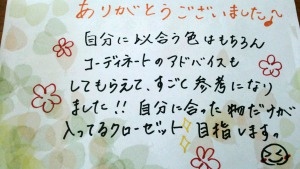 ありがとうございました♪
自分に似合う色はもちろん
コーディネートのアドバイスも
してもらえて、すごく参考になり
ました!! 自分に合った物だけが
入ってるクローゼット✨目指します。